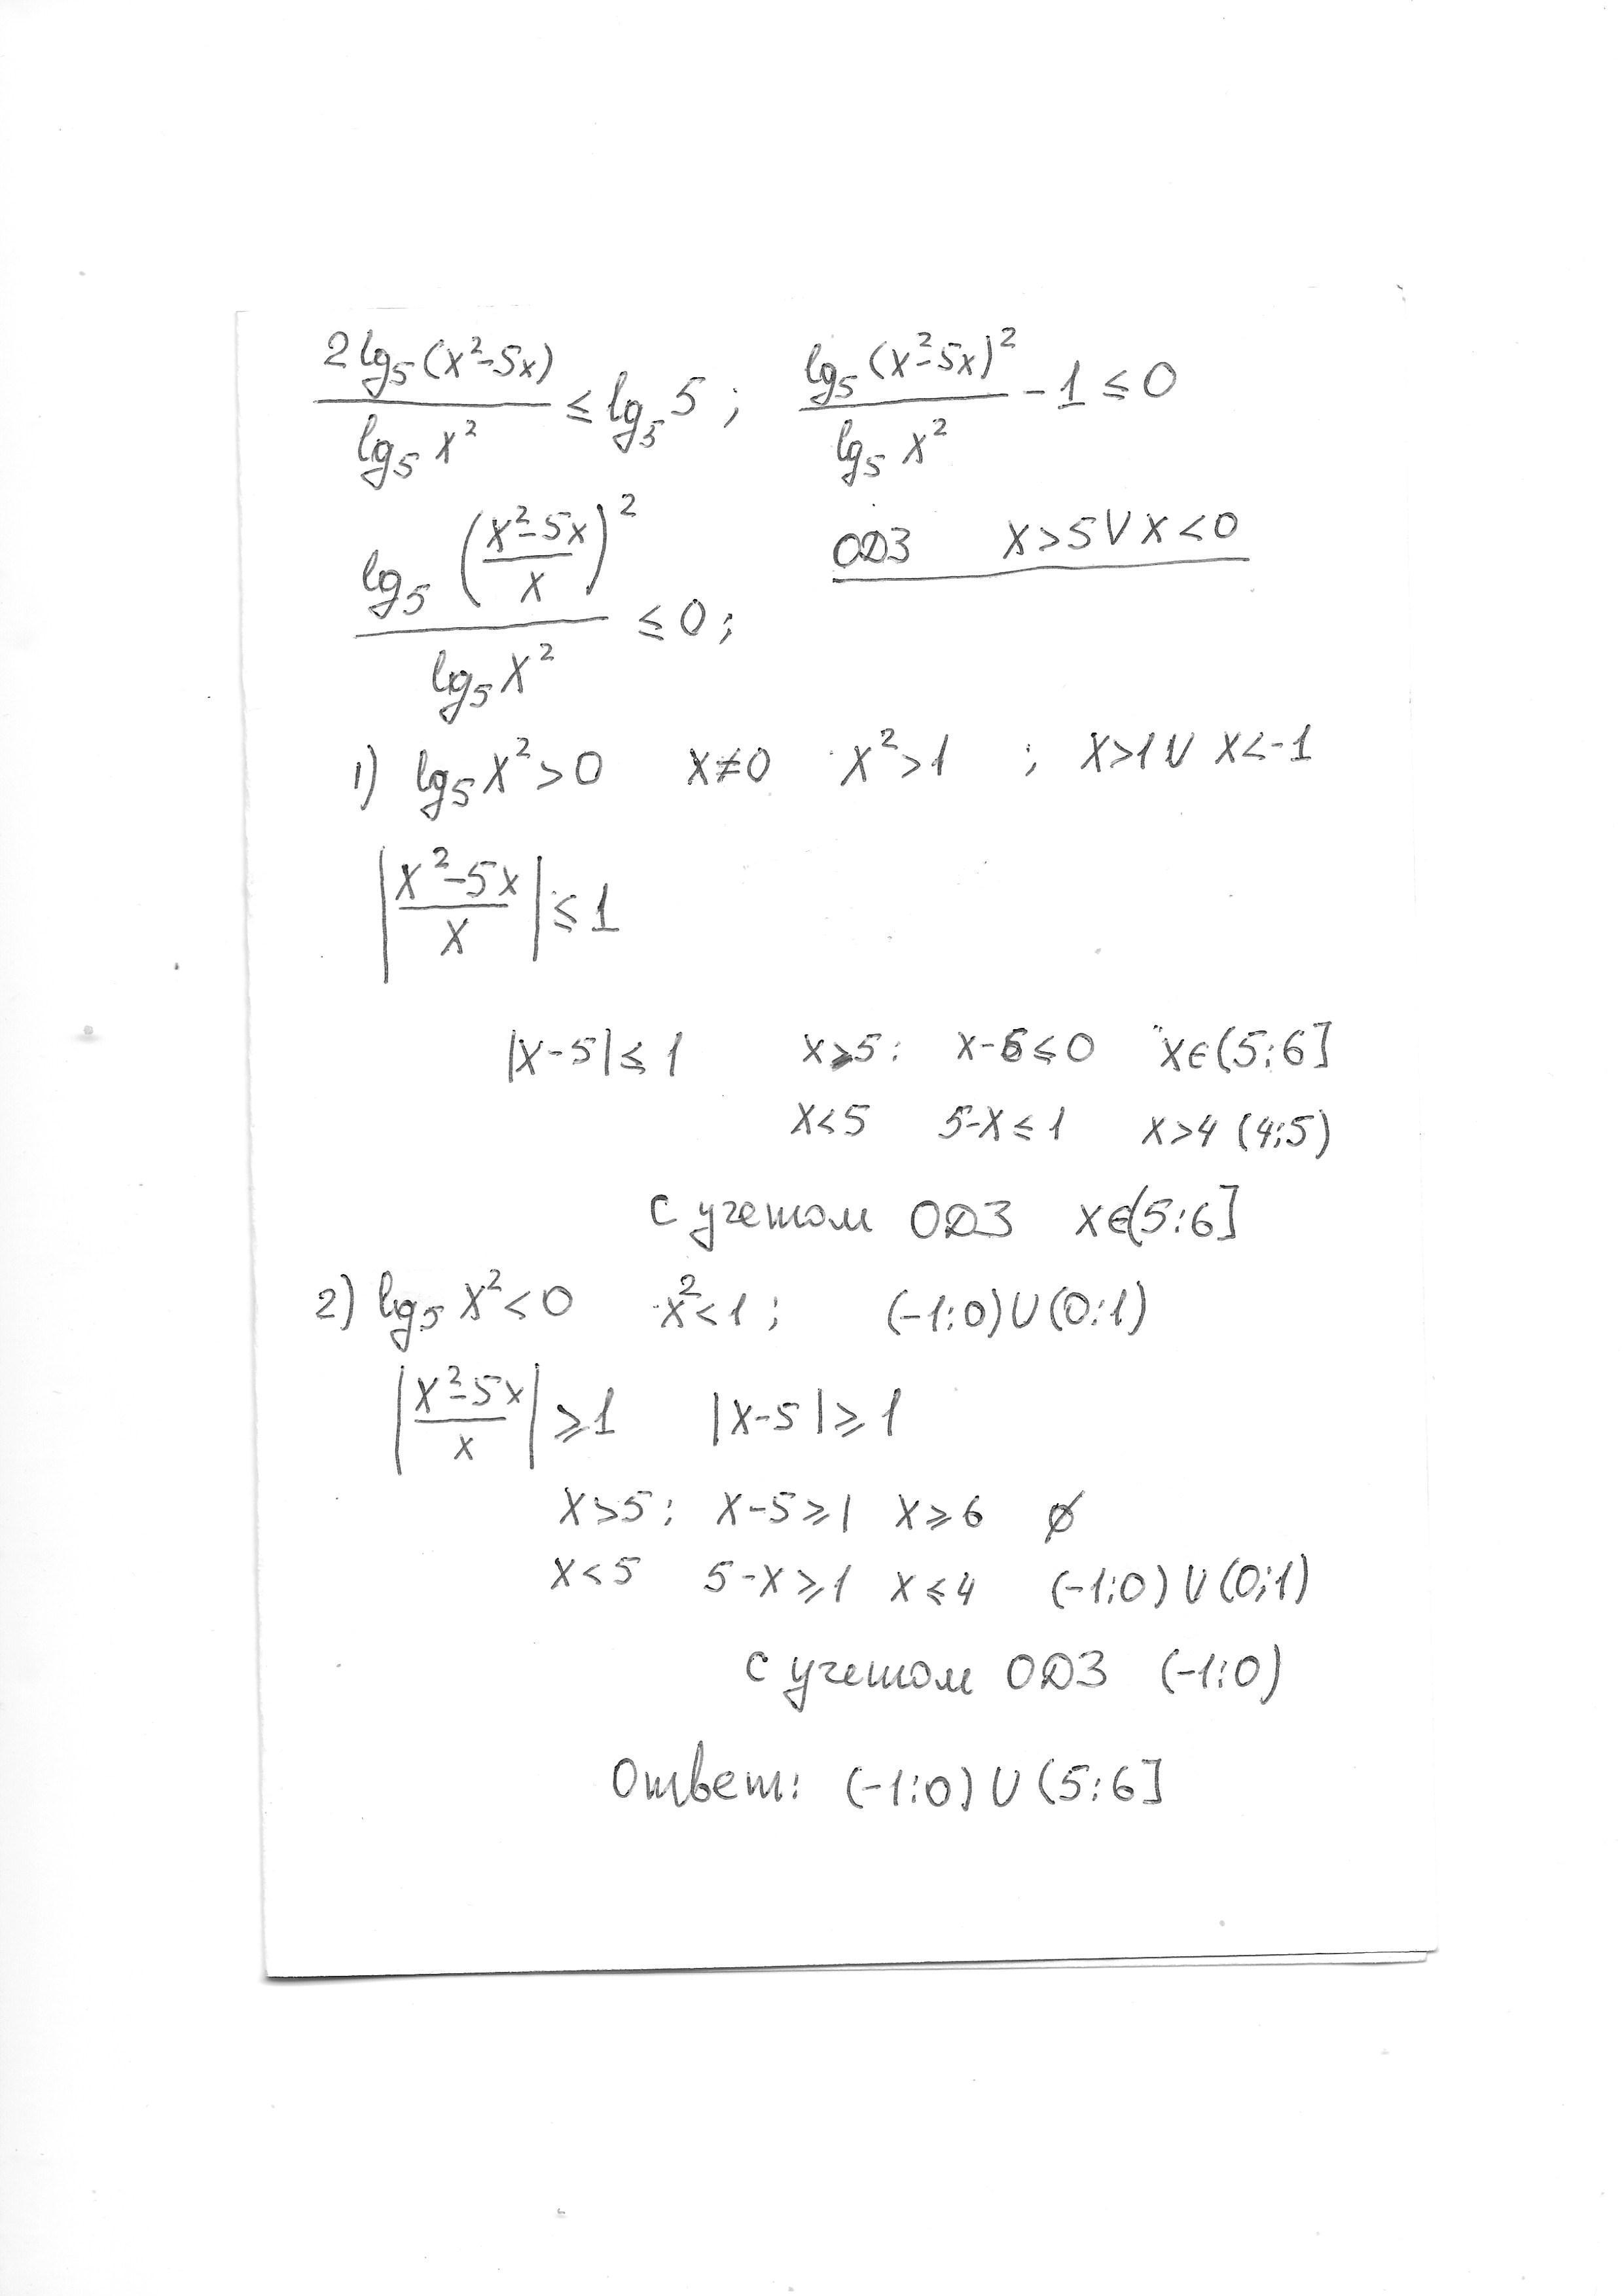 2 lg₅(x²-5x) / lg₅ x² ≤ lg₅ 5 ; lg₅(x²-5x)² / lg₅ x² - 1 ≤ 0
lg₅ ((x²-5x)/x)² / lg₅ x² ≤ 0 ; ОДЗ x>5 V x<0
1) lg₅ x² > 0 x≠0 x²>1 ; x>1 U x<-1
|(x²-5x)/x| ≤ 1
|x-5| ≤ 1 x≥5: x-6≤0 x∈(5;6]
x<5 5-x≤1 x>4 (4;5)
с учетом ОДЗ x∈(5;6]
2) lg₅ x² < 0 x²<1 ; (-1;0) U (0;1)
|(x²-5x)/x| ≥ 1 |x-5| ≥ 1
x>5: x-5≥1 x≥6 ∅
x<5 5-x≥1 x≤4 (-1;0) U (0;1)
с учетом ОДЗ (-1;0)
Ответ: (-1;0) U (5;6]